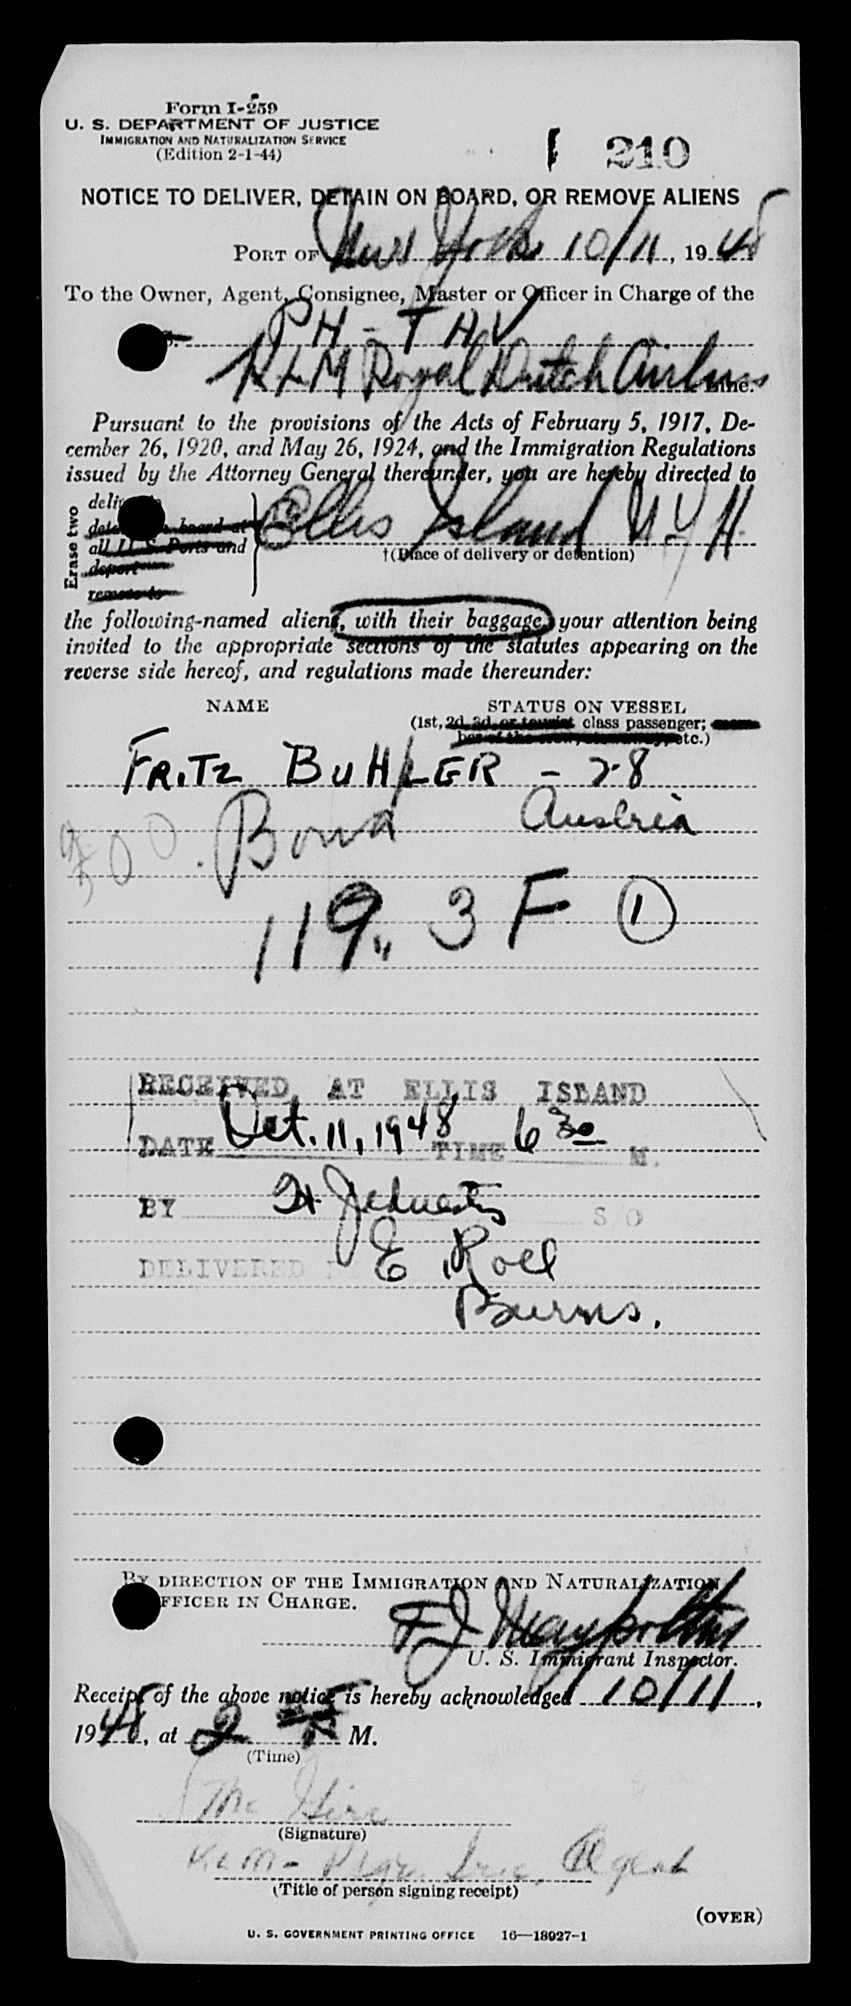 Form I-259
U. S. DEPARTMENT OF JUSTICE
IMMIGRATION AND NATURALIZATION SERVICE
(Edition 2-1-44)
210
NOTICE TO DELIVER, DETAIN ON BOARD, OR REMOVE ALIENS
PORT OF New York 10/11, 1948
To the Owner, Agent, Consignee, Master or Officer in Charge of the
PH-TAV
KLM Royal Dutch Airlines Line.
Pursuant to the provisions of the Acts of February 5, 1917, De-
cember 26, 1920, and May 26, 1924, and the Immigration Regulations
issued by the Attorney General thereunder, you are hereby directed to
Erase two
deliver to
detain on board at
all U. S. Ports and
deport
remove to
Ellis Island N.Y.H.
†(Place of delivery or detention)
the following-named aliens, with their baggage, your attention being
invited to the appropriate sections of the statutes appearing on the
reverse side hereof, and regulations made thereunder:
NAME STATUS ON VESSEL
(1st, 2d, 3d, or tourist class passenger; mem-
ber of the crew, etc.)
FRITZ BUHLER - 28
500. Bond Austria
119. 3 F 1
RECEIVED AT ELLIS ISLAND
DATE Oct. 11, 1948 TIME 6 30 M.
BY H. S O
DELIVERED E Roll
Burns.
BY DIRECTION OF THE IMMIGRATION AND NATURALIZATION
OFFICER IN CHARGE.
F J
U. S. Immigrant Inspector.
Receipt of the above notice is hereby acknowledged 10/11,
1948, at 2 M.
(Time)
(Signature)
KLM - Agent
(Title of person signing receipt)
(OVER)
U. S. GOVERNMENT PRINTING OFFICE 16—18927-1